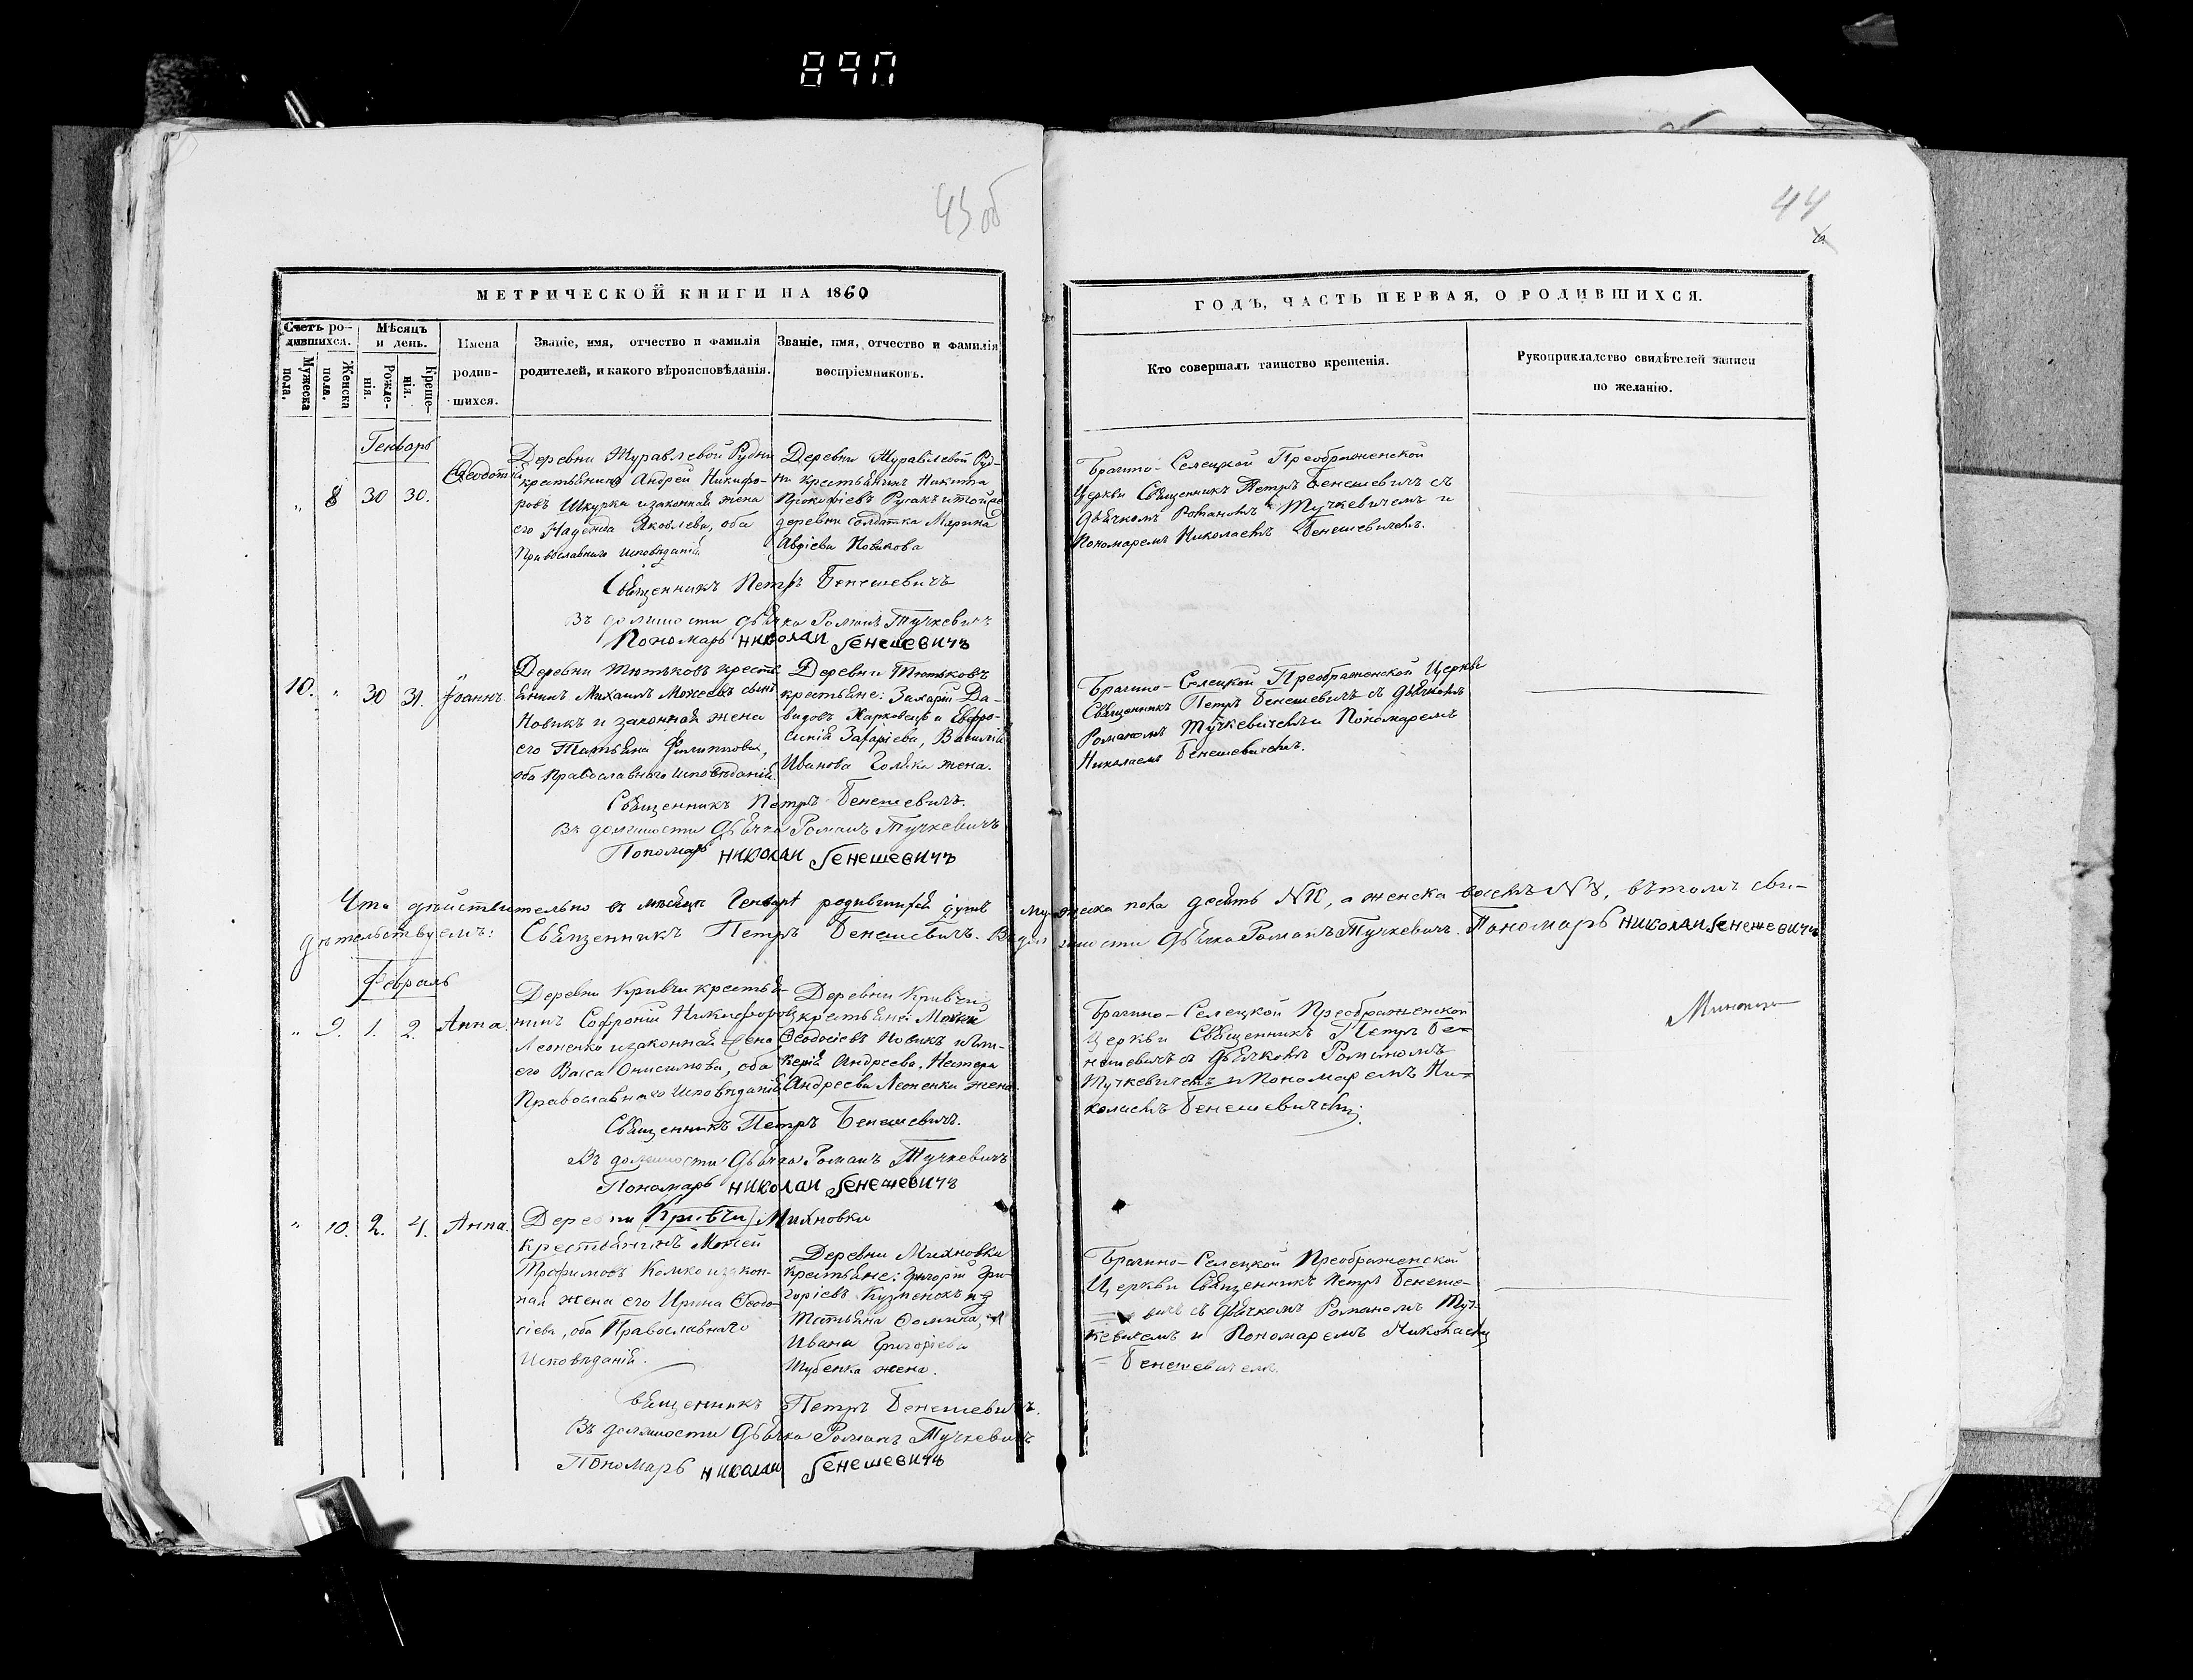 890
43 об
44
МЕТРИЧЕСКОЙ КНИГИ НА 1860
Счетъ ро-
дившихся.
Мѣсяцъ
и день.
Мужеска
пола.
Женска
пола.
Рожде-
нія.
Креще-
нія.
Имена
родив-
шихся.
Званіе, имя, отчество и фамилія
родителей, и какого вѣроисповѣданія.
Званіе, имя, отчество и фамилія
воспріемниковъ.
ГОДЪ, ЧАСТЬ ПЕРВАЯ, О РОДИВШИХСЯ.
Кто совершалъ таинство крещенія.
Рукоприкладство свидѣтелей записи
по желанію.
Генварь
„ 8 30 30.
Деревни Журавлевой Рудни
крестьянинъ Андрей Никифо-
ровъ Шкурка и законная жена
его Надежда Яковлева, оба
Православнаго исповѣданія
Деревни Журавлевой Руд-
ни крестьянинъ Никита
Прокофіевъ Русакъ и той же
деревни солдатка Марина
Авдіева Новикова
Брагино-Селецкой Преображенской
Церкви Священникъ Петръ Бенешевичъ съ
дьячкомъ Романомъ Тучкевичемъ и
Пономаремъ Николаемъ Бенешевичемъ.
Священникъ Петръ Бенешевичъ
Въ должности дьячка Романъ Тучкевичъ
Пономарь Николай Бенешевичъ
10. „ 30 31. Іоаннъ.
Деревни Тютьковъ кресть
янинъ Михаилъ Моисеевъ сынъ
Новикъ и законная жена
его Татьяна Филиппова,
оба Православнаго исповѣданія.
Деревни Тютьковъ
крестьяне: Захарій Да-
видовъ Харковецъ и Евфро-
синія Захаріева, Василія
Иванова Голика жена.
Брагино-Селецкой Преображенской Церкви
Священникъ Петръ Бенешевичъ съ дьячкомъ
Романомъ Тучкевичемъ и Пономаремъ
Николаемъ Бенешевичемъ.
Священникъ Петръ Бенешевичъ.
Въ должности дьячка Романъ Тучкевичъ
Пономарь Николай Бенешевичъ
Что дѣйствительно въ мѣсяцѣ Генварѣ родившихся душъ мужеска пола десять №10, а женска восемь №8, въ томъ сви-
дѣтельствуемъ: Священникъ Петръ Бенешевичъ. В должности дьячка Романъ Тучкевичъ. Пономарь Николай Бенешевичъ
Февраль
„ 9. 1. 2. Анна.
Деревни Кривчи крестья-
нинъ Софроній Никифоровъ
Леоненко и законная жена
его Васса Онисимова, оба
Православнаго исповѣданія
Деревни Кривчи
крестьяне: Моисей
Ѳеодосіевъ Новикъ и
Андреева, Нестера
Андреева Леоненки жена.
Брагино-Селецкой Преображенской
Церкви Священникъ Петръ Бе-
нешевичъ съ дьячкомъ Романомъ
Тучкевичемъ и Пономаремъ Ни-
колаемъ Бенешевичемъ.
Священникъ Петръ Бенешевичъ.
Въ должности дьячка Романъ Тучкевичъ
Пономарь Николай Бенешевичъ
„ 10. 2. 4. Анна.
Деревни (Кривчи) Михновки
крестьянинъ Моисей
Трофимовъ Калко и закон-
ная жена его Ирина Ѳеодо-
сіева, оба Православнаго
Исповѣданія.
Деревни Михновки
крестьяне: Григорій Гри-
горіевъ Кузменокъ и
Татьяна Ѳомина,
Ивана Григоріева
Шубенка жена.
Брагино-Селецкой Преображенской
Церкви Священникъ Петръ Бенеше-
вичъ съ дьячкомъ Романомъ Туч-
кевичемъ и Пономаремъ Николаемъ
Бенешевичемъ.
Священникъ Петръ Бенешевичъ.
Въ должности дьячка Романъ Тучкевичъ
Пономарь Николай Бенешевичъ